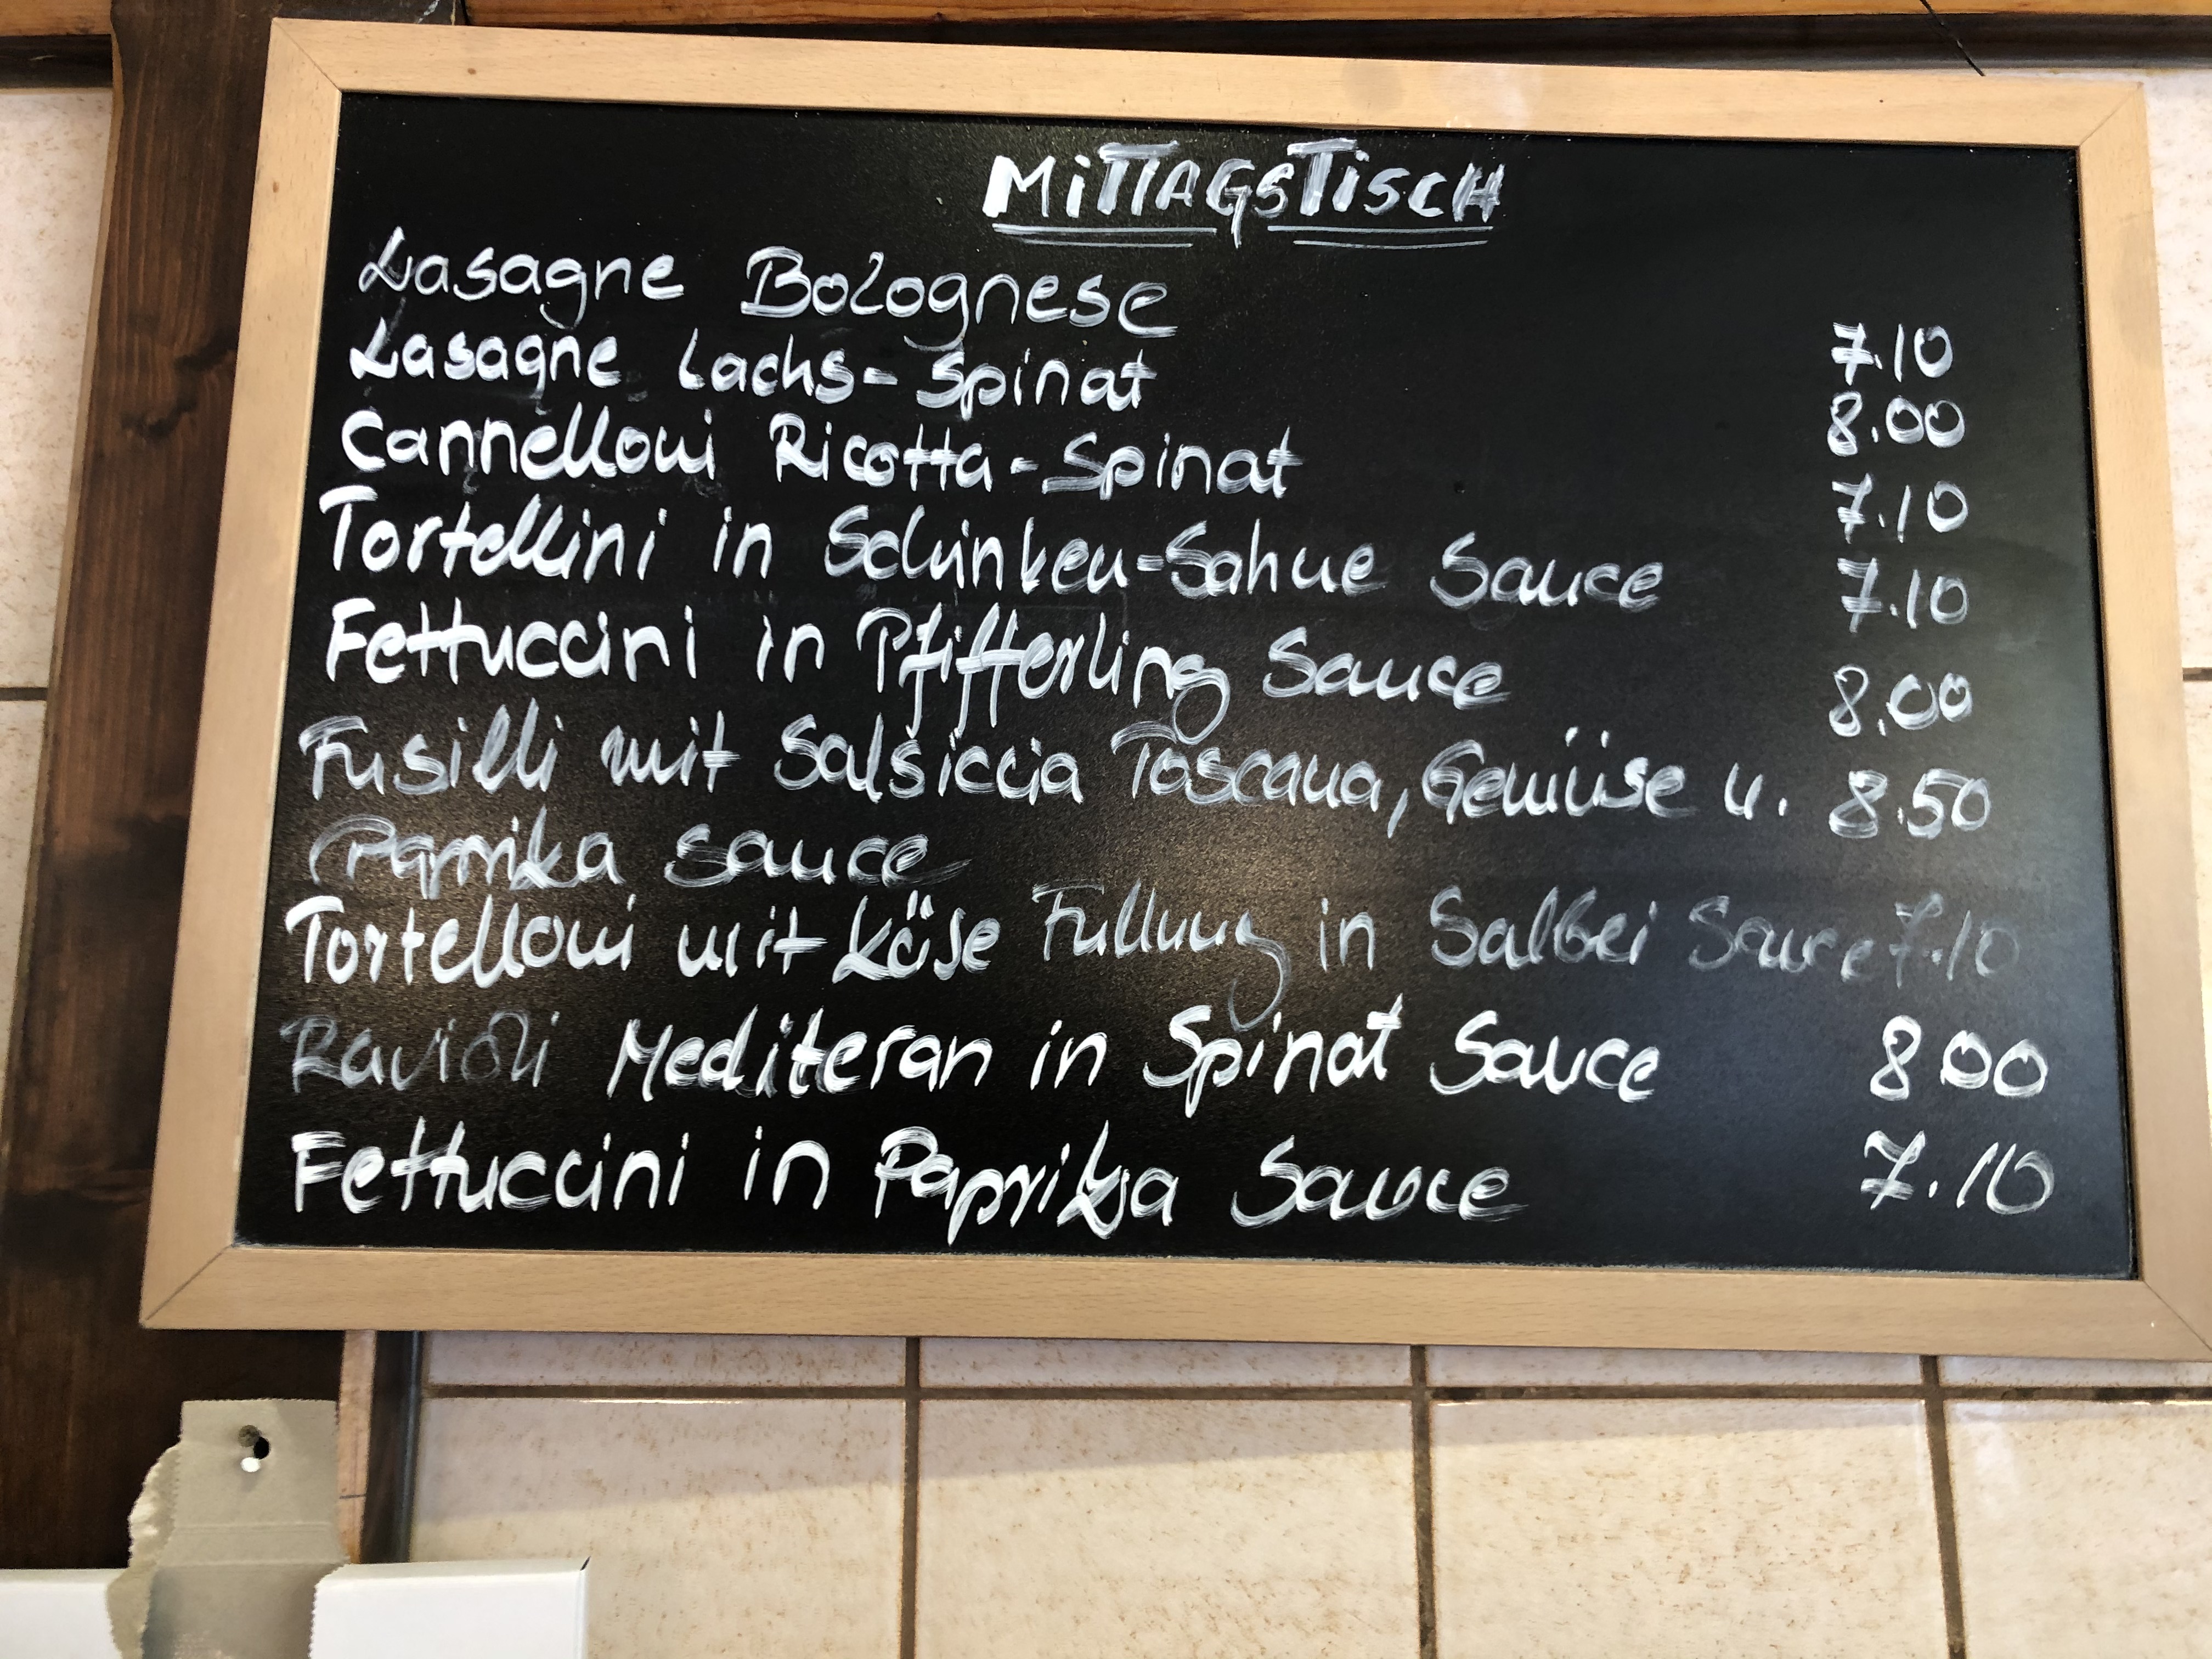 MiTTAGSTiSCH
Lasagne Bolognese 7.10
Lasagne Lachs-Spinat 8.00
Cannelloni Ricotta-Spinat 7.10
Tortellini in Schinken-Sahne Sauce 7.10
Fettuccini in Pfifferling Sauce 8.00
Fusilli mit Salsiccia Toscana, Gemüse u. 8.50
Paprika Sauce
Tortelloni mit Käse Fullung in Salbei Sauce 7.10
Ravioli Mediteran in Spinat Sauce 8.00
Fettuccini in Paprika Sauce 7.10